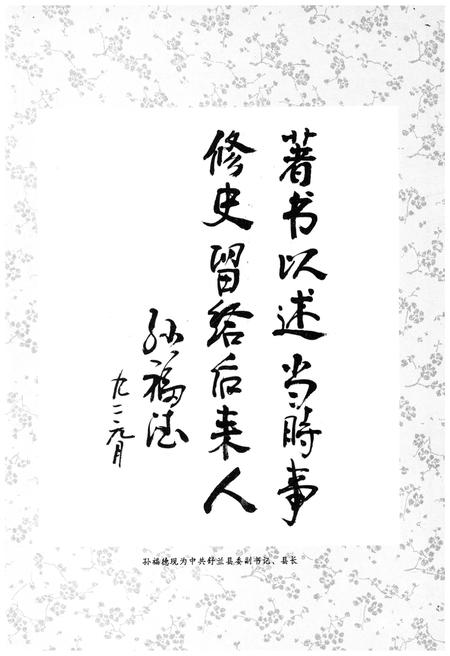 著书以述当時事
修史留给后来人
孙福德
孙福德现为中共舒兰县委副书记、县长